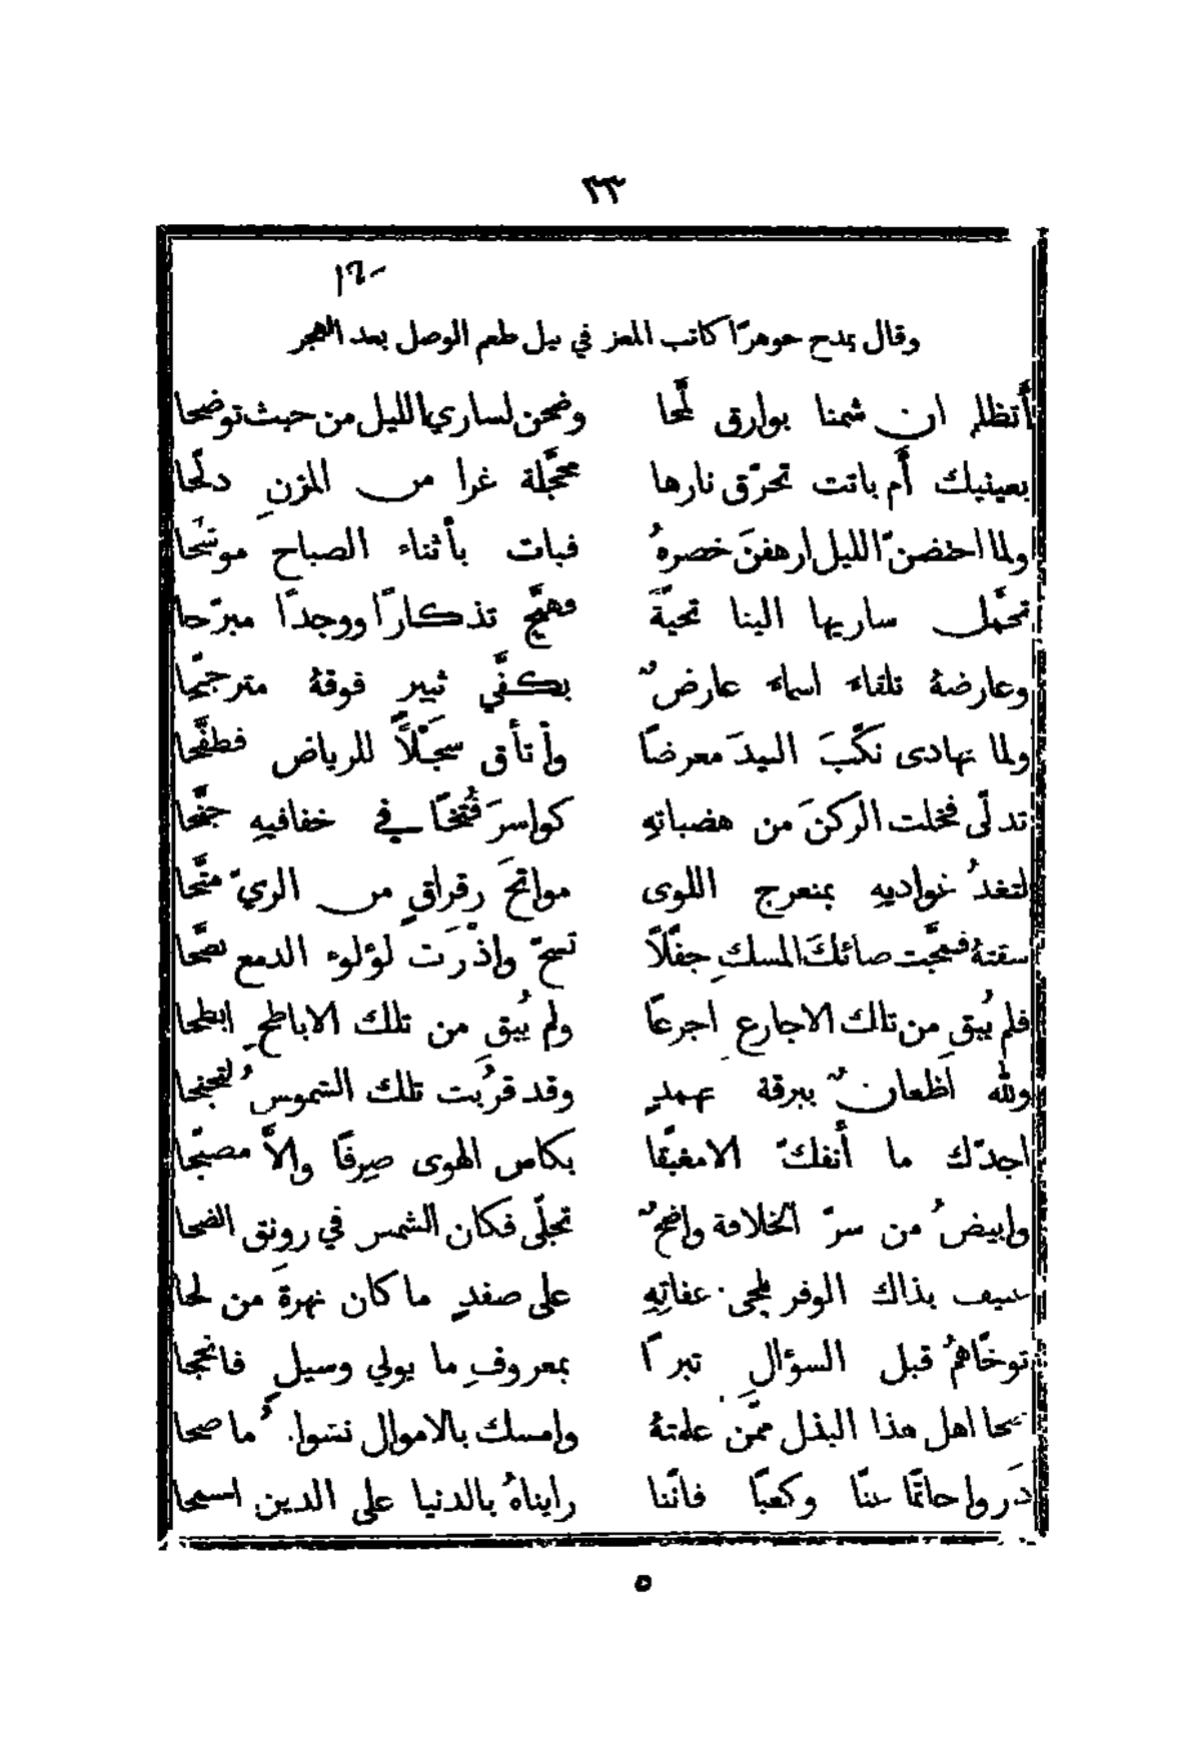 ٣٣
وقال يمدح جوهرًا كاتب المعز في نيل طعم الوصل بعد الهجر
أتظلم ان شمنا بوارق لمَّحا وضحن لساري الليل من حيث توضحا
بعينيك أم باتت تحرّق نارها محجَّلة غرا من المزنِ دلّحا
ولما احتضنّ الليل ارهفنَ خصرهُ فبات بأثناء الصباح موشّحا
تحمَّل ساريها الينا تحيَّةً فهيَّج تذكارًا ووجدًا مبرّحا
وعارضهُ تلقاء اسماء عارضٌ يكفَّي ثبير فوقهُ مترجّحا
ولما تهادى نكَّبَ البيدَ معرضًا وأتأق سَجْلًا للرياض فطفَّحا
تدلّى فخلت الركنَ من هضباتهِ كواسرَ فُتخًا في خفافيهِ جنَّحا
لتغدُ غواديهِ بمنعرج اللوى مواتحَ رقراقٍ من الريّ متَّحا
سقتهُ فمجَّت صائكَ المسكِ جفَّلًا تسحّ واذْرَت لؤلوء الدمع نضَّحا
فلم يُبقِ من تلك الاجارع اجرعًا ولم يُبقِ من تلك الاباطحِ ابطحا
ولله اَظعانٌ ببرقة ثهمدٍ وقد قرُبت تلك الشموسُ لتجنحا
اجدّك ما أنفكّ الا مغبَّقا بكاس الهوى صِرفًا والاَّ مصبّحا
وابيضُ من سرّ الخلافة واضحٌ تجلّى فكان الشمس في رونِق الضحا
بذاك الوفر يلجى عفاتِهِ على صفدٍ ما كان نهرةَ من لحا
توخَّاهمُ قبل السؤالِ تبرعًا بمعروفِ ما يولي وسيلِ فانجحا
صحا اهل هذا البذل ممَّن علمتهُ وامسك بالاموال نشوانُ ما صحا
ذَروا حاتمًا عنَّا وكعبًا فانّنا رايناهُ بالدنيا على الدين اسمحا
٥